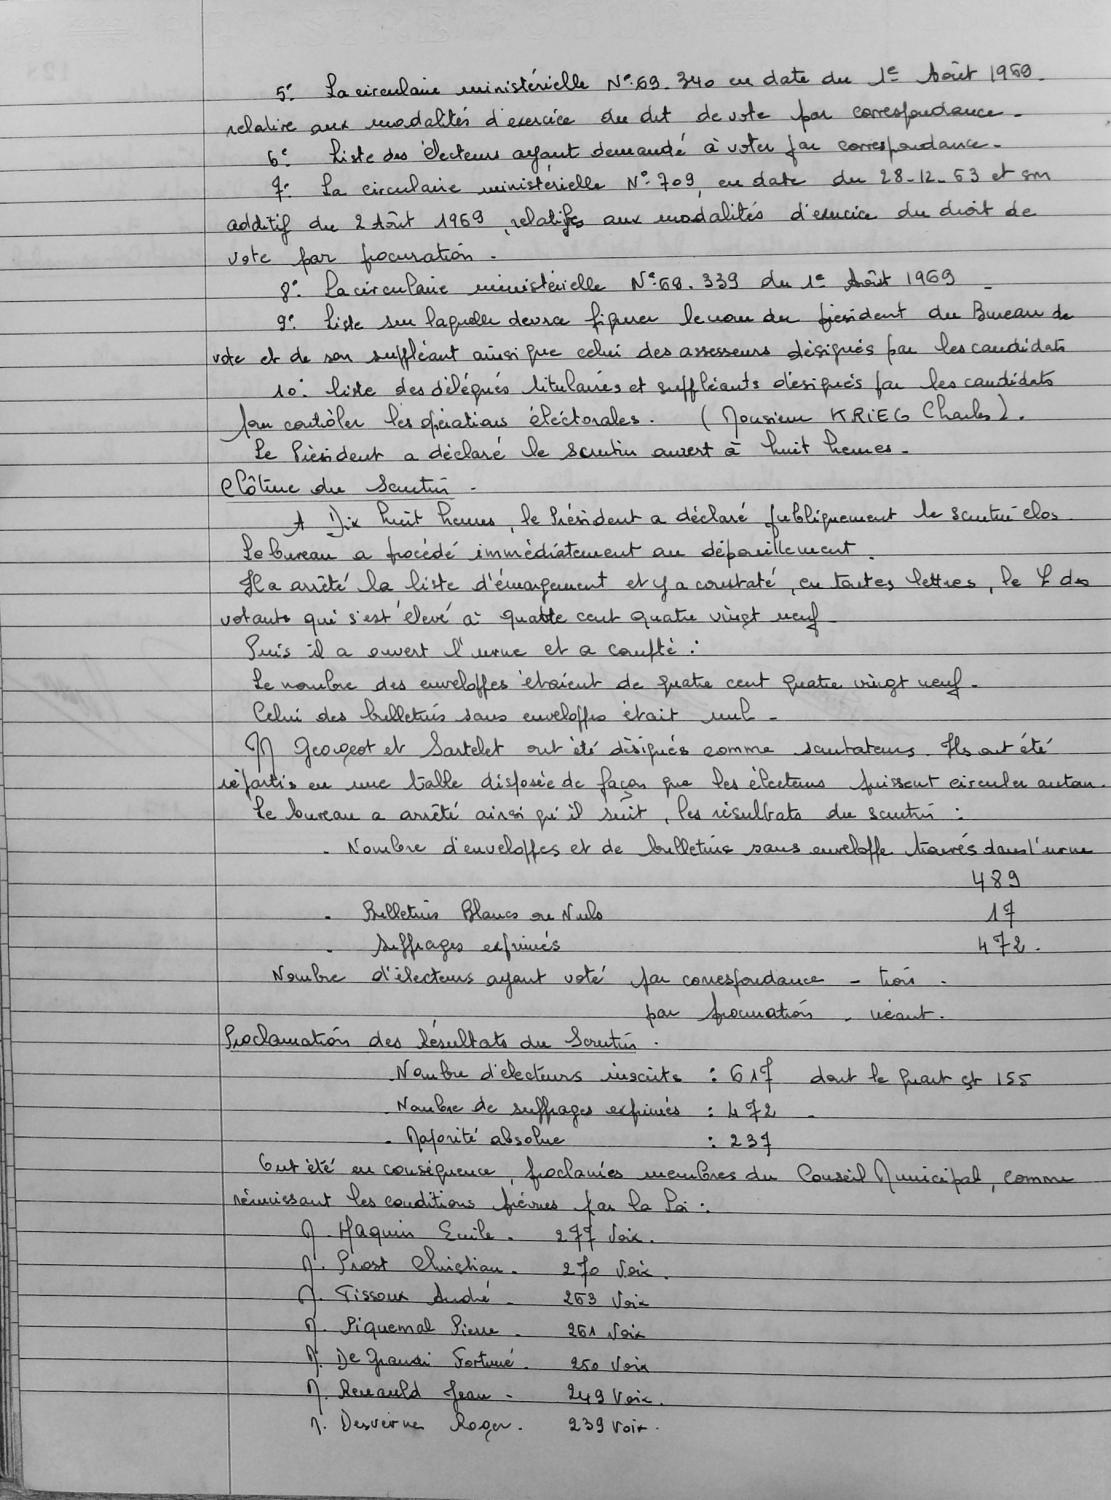 5° La circulaire ministérielle N° 69.340 en date du 1e Août 1969.
relative aux modalités d'exercice du dit de vote par correspondance.
6° Liste des électeurs ayant demandé à voter par correspondance.
7° La circulaire ministérielle N° 709, en date du 28-12-63 et son
additif du 2 Août 1969, relatifs aux modalités d'exercice du droit de
vote par procuration.
8° La circulaire ministérielle N° 69.339 du 1e Août 1969
9° Liste sur laquelle devra figurer le nom du président du Bureau de
vote et de son suppléant ainsi que celui des assesseurs désignés par les candidats
10° liste des délégués titulaires et suppléants désignés par les candidats
pour contrôler les opérations éléctorales. (Monsieur KRIEG Charles).
Le Président a déclaré le scrutin ouvert à huit heures.
Clôture du Scrutin.
A Dix huit heures, le Président a déclaré publiquement le scrutin clos
Le bureau a procédé immédiatement au dépouillement.
Il a arrêté la liste d'émargement et y a constaté, en toutes lettres, le des
votants qui s'est élevé à quatre cent quatre vingt neuf
Puis il a ouvert l'urne et a compté :
Le nombre des enveloppes étaient de quatre cent quatre vingt neuf.
Celui des bulletins sans enveloppes était nul.
M Georgeot et Sartelet ont été désignés comme scrutateurs. Ils ont été
répartis en une table disposée de façon que les électeurs puissent circuler autour.
Le bureau a arrêté ainsi qu'il suit, les résultats du scrutin :
- Nombre d'enveloppes et de bulletins sans enveloppe trouvés dans l'urne
489
- Bulletins Blancs ou Nuls 17
- Suffrages exprimés 472.
Nombre d'électeurs ayant voté par correspondance - trois.
par procuration - néant.
Proclamation des Résultats du Scrutin.
Nombre d'électeurs inscrits : 617 dont le quart est 155
- Nombre de suffrages exprimés : 472
- Majorité absolue : 237
Ont été en conséquence, proclamés membres du Conseil Municipal, comme
réunissant les conditions prévues par la Loi :
M. Haquin Emile. 277 Voix.
M. Prost Christian. 270 Voix.
M. Tissoux André. 263 Voix
M. Piquemal Pierre. 261 Voix
M. De Grandi Fortuné. 250 Voix
M. Renauld Jean. 249 Voix.
M. Desvernes Roger. 239 Voix.